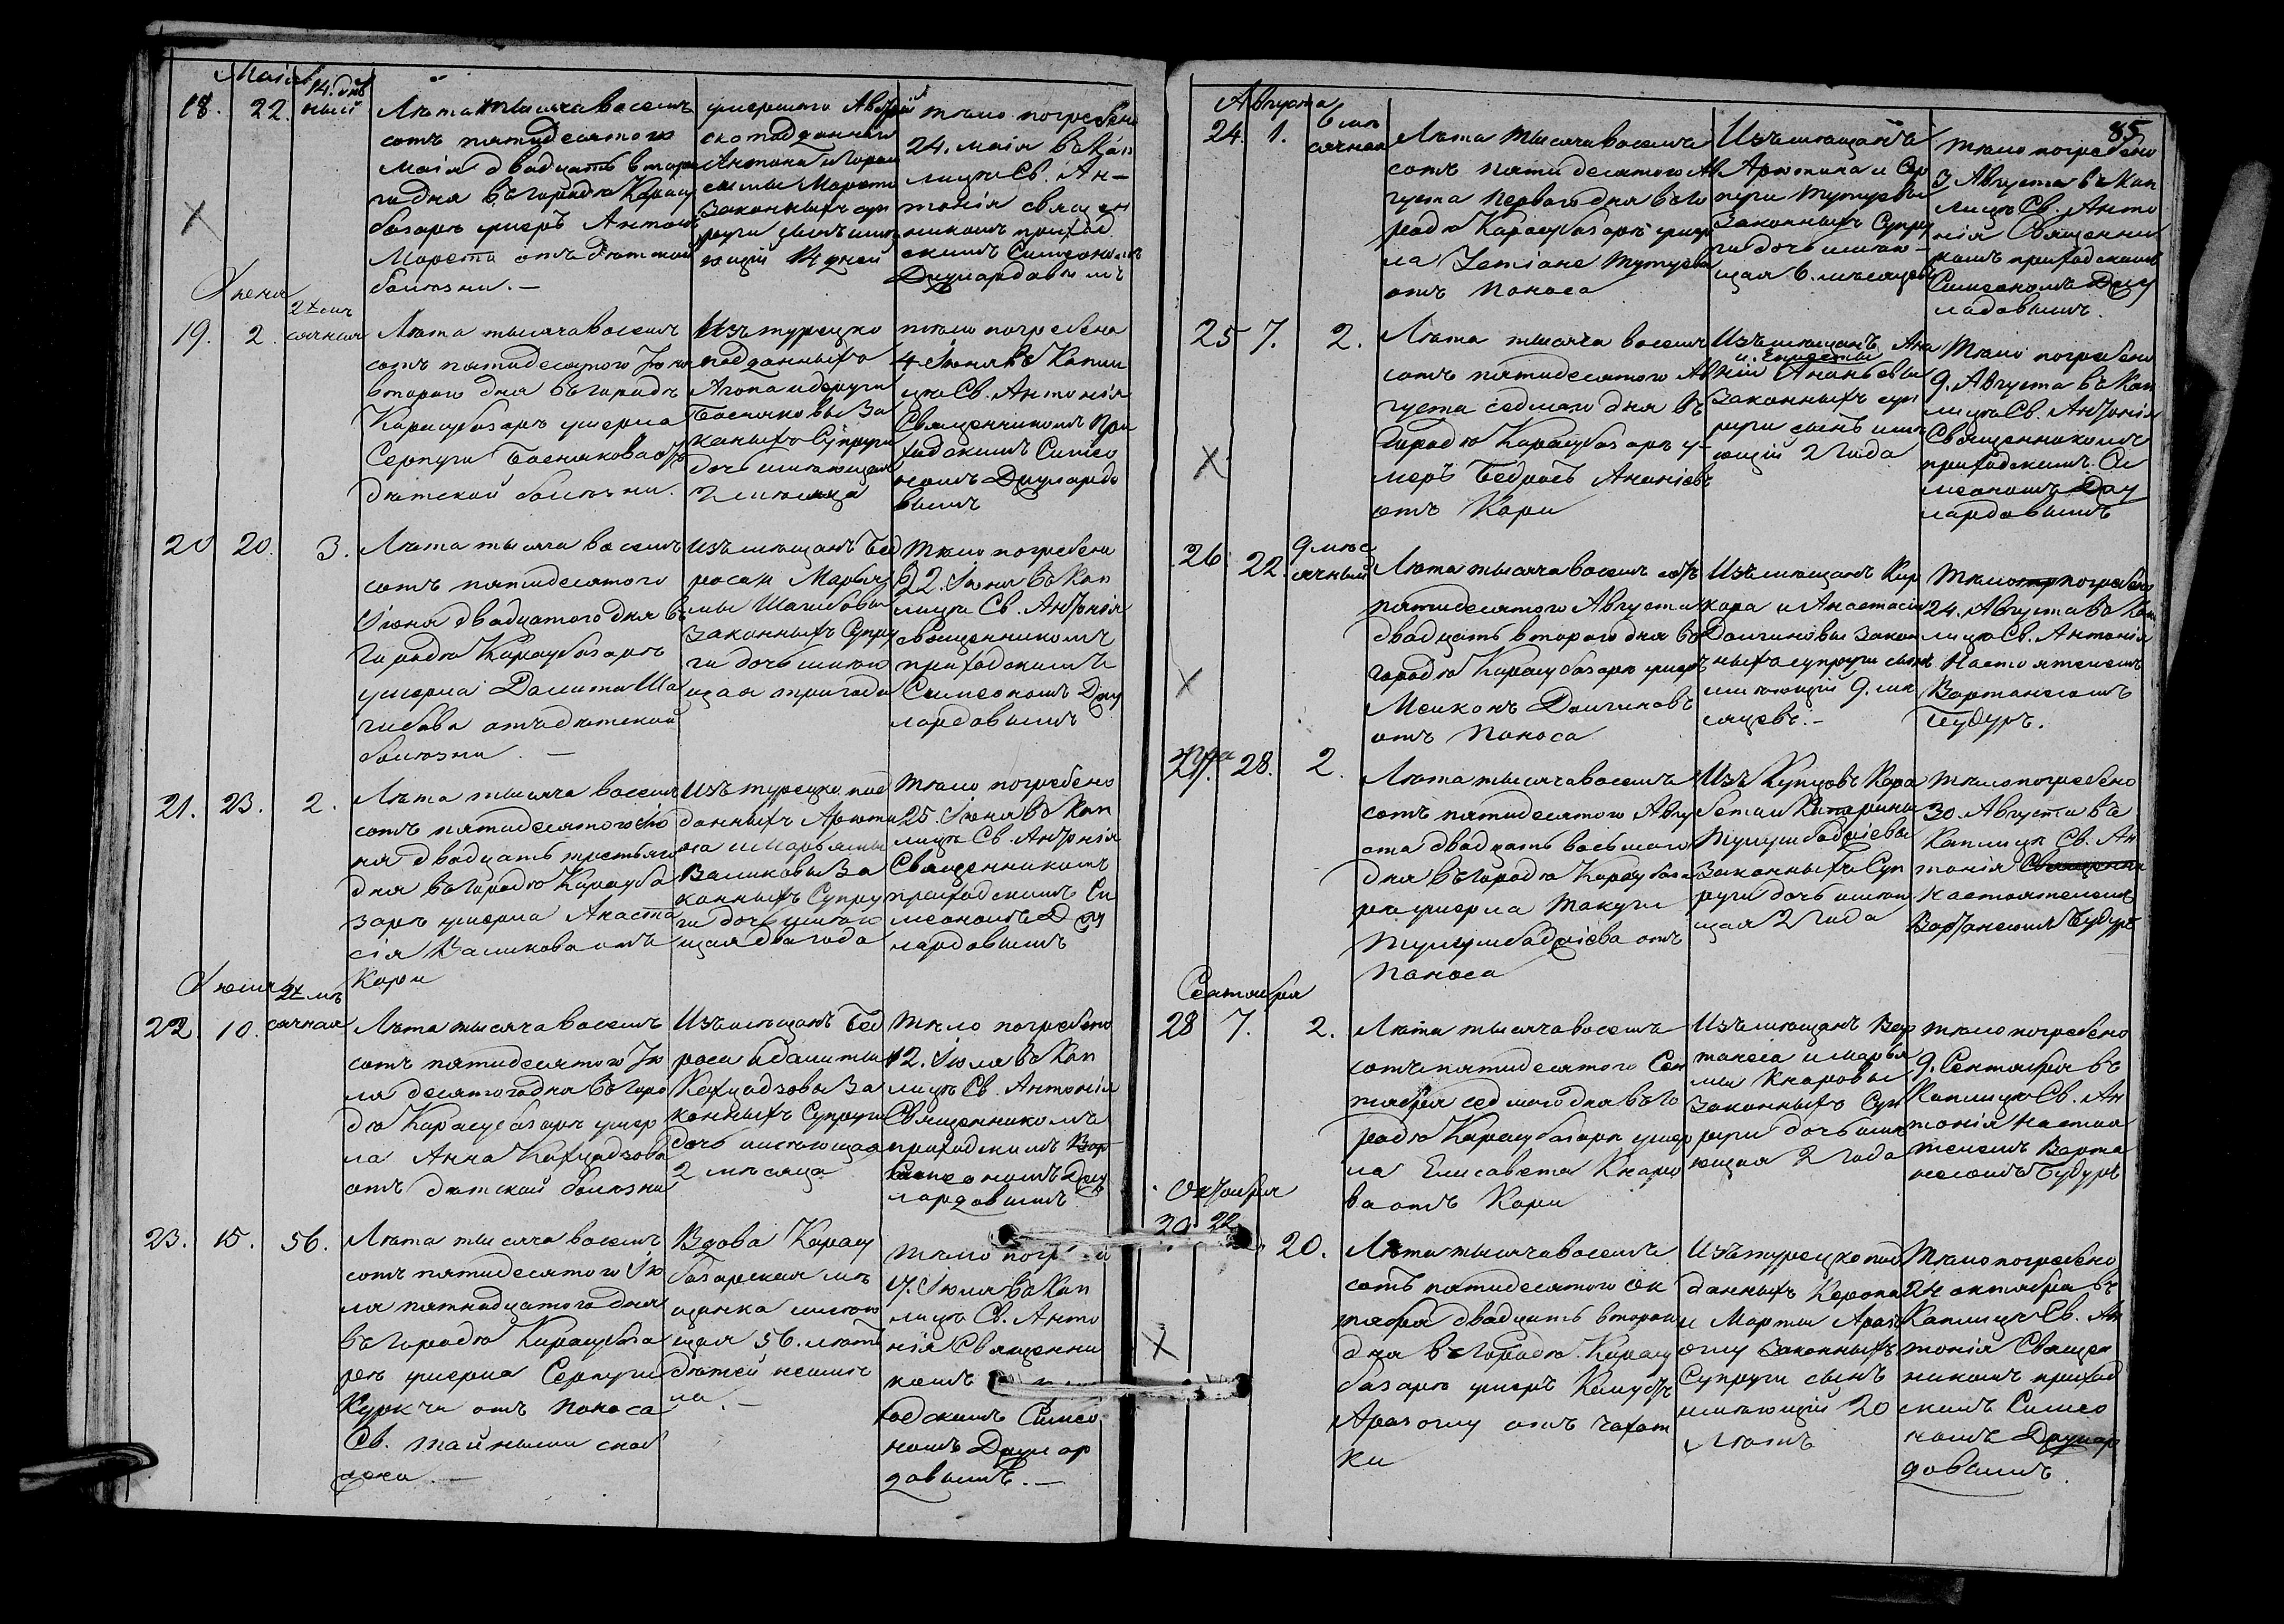 Маія
14. дне
18. 22. ный
Лѣта тысяча восемь
сотъ пятидесятого
Маія двадцать второ
го дня въ городѣ Карасу
базарѣ умеръ Антонъ
Морети отъ дѣтской
болѣзни. —
умершого Австрій
ско подданный
Антона и
Морети
законныхъ суп
руги сынъ имѣ
ющій 14 дней
тѣло погребено
24. Маія въ кап
лицѣ Св. Ан-
тонія священ
никомъ приход
скимъ Симеономъ
Джулардовымъ
Іюня
2х мѣ
19. 2. сячная
Лѣта тысяча восемь
сотъ пятидесятого Іюня
второго дня въ городѣ
Карасубазарѣ умерла
Серпуги Босняковаотъ
дѣтской болѣзни.
Изъ турецко
подданныхъ
Агопа и Серпуги
Босняковы За
коныхъ Супруги
дочь имѣющая
2 мѣсяца
тѣло погребено
4 Іюня въ Капли
цѣ Св. Антонія
Священникомъ При
ходскимъ Симео
номъ Джулардо
вымъ
20 20. 3.
Лѣта тысяча восемь
сотъ пятидесятого
Іюня двадцатого дня въ
городѣ Карасубазарѣ
умерла Даллита Ша
гибова отъ дѣтской
болѣзни —
Изъ мѣщанъ Бед
росаи Марья
мы Шагибовы
законныхъ Супру
ги дочь имѣю
щая три года
Тѣло погребено
22. Іюня въ Кап
лицѣ Св. Антонія
священникомъ
приходскимъ
Симеономъ Джу
лардовымъ
21. 23. 2.
Лѣта тысяча восемь
сотъ пятидесятого Ію
ня двадцать третьяго
дня въ городѣ Карасуба
зарѣ умерла Анаста
сія Валикова отъ
Кори
Изъ турецко под
данныхъ Арюти
на и Марьямы
Валиковы За
конныхъ Супру
ги дочь имѣю
щая два года
Тѣло погребено
25. Іюня въ Кап
лицѣ Св. Антонія
Священникомъ
приходскимъ Си
меономъ Джу
лардовымъ
Іюля
2х мѣ
22. 10. сячная
Лѣта тысяча восемь
сотъ пятидесятого Ію
ля десятого дня въ горо
дѣ Карасубазарѣ умер
ла Анна Кефчадзова
отъ дѣтской болѣзни
Изъ мѣщанъ Бед
роса и Даллиты
Кефчадзовы За
конныхъ Супруги
дочь имѣющая
2 мѣсяца
Тѣло погребено
12. Іюля въ Кап
лицѣ Св. Антонія
Священникомъ
приходскимъ Вар
Симеономъ Джу
лардовымъ
23. 15. 56.
Лѣта тысяча восемь
сотъ пятидесятого Ію
ля пятнадцатого дня
въ городѣ Карасубаза
рѣ умерла Серпуги
Куркчи отъ Поноса
Св. тайными спод
лена. —
Вдова Карасу
базарская мѣ
щанка имѣю
щая 56. лѣтъ
дѣтей неимѣ
ла. —
тѣло
17. Іюля въ Кап
лицѣ Св. Анто
нія Священни
комъ
ходскимъ Симео
номъ Джулар
довымъ. —
85
Августа
6 мѣ
24. 1. сячная
Лѣта тысяча восемь
сотъ пяти десятого Ав
густа первого дня въ го
родѣ Карасубазарѣ умер
ла Тутуева
отъ Поноса
Изъ мѣщанъ
Арютина и Сер
пуги Тутуевы
законныхъ Супру
ги дочь имѣю-
щая 6. мѣсяцевъ
тѣло погребено
3 Августа въ Кап
лицѣ Св. Анто
нія Священни
комъ приходскимъ
Симеономъ Джу
ладовымъ.
25 7. 2.
Лѣта тысяча восемь
сотъ пятидесятого Ав
густа седмаго дня въ
городѣ Карасубазарѣ у-
меръ Бедросъ Ананіевъ
отъ Кори
Изъ мѣщанъ Ана
ніи и Ананьевы
законныхъ суп
руги сынъ имѣ
ющій 2 года
Тѣло погребено
9. Августа въ Кап
лицѣ Св. Антонія
Священникомъ
приходскимъ Си
меономъ Джу
лардовымъ
9 мѣс
26. 22. сячный
Лѣта тысяча восемь сотъ
пятидесятого Августа
двадцать второго дня въ
городѣ Карасубазарѣ умеръ
Мелконъ Долгиновъ
отъ Поноса
Изъ мѣщанъ Кир
кора и Анастасіи
Долгиновы закон
ныхъ супруги сынъ
имѣющій 9. мѣ
сяцевъ. —
Тѣло погребено
24. Августа въ Кап
лицѣ Св. Антонія
Настоятелемъ
Вартанесомъ
Будуръ.
27. 28. 2.
Лѣта тысяча восемь
сотъ пятидесятого Авгу
ста двадцать восьмого
дня въ городѣ Карасубаза
рѣ умерла Такуги
отъ
Поноса
Изъ Купцовъ Кара
бетаи Катарины
законныхъ Суп
руги дочь имѣю
щая 2 года
Тѣло погребено
30. Августа въ
Каплицѣ Св. Ан
тонія Священни
Настоятелемъ
Вартанесомъ Будуръ
Сентября
28 7. 2.
Лѣта тысяча восемь
сотъ пятидесятого Сен
тября седмаго дня въ го
родѣ Карасубазарѣ умер
ла Елисавета Кнаро
ва отъ Кори
Изъ мѣщанъ Вар
танеса и Марья
мы Кнаровы
законныхъ Суп
руги дочь имѣ
ющая 2 года
тѣло погребено
9. Сентября въ
Каплицѣ Св. Ан
тонія Настоя
телемъ Варта
несомъ Будуръ
Октября
22
20.
Лѣта тысяча восемь
сотъ пятидесятого Ок
тября двадцать второго
дня въ городѣ Карасу
базарѣ умеръ
отъ чахот
ки
Изъ турецко под
данныхъ Керопа
и Марты
оглу законныхъ
Супруги сынъ
имѣющій 20
лѣтъ
Тѣло погребено
24 октября въ
Каплицѣ Св. Ан
тонія Священ
никомъ приход
скимъ Симео
номъ Джулар
довымъ.